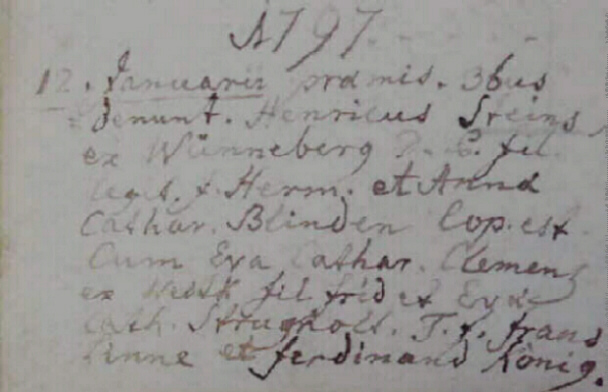 1797.
12. Januarii præmis. 3bus
denunt. Henricus Sreins
ex Wünneberg fil.
legit. Herm. et Anna
Cathar. Blinden Cop. est
Cum Eva Cathar. Clemens
ex fil frid et Evæ
Cath. Strugholt. T. f. frans
Linne et ferdinand König.